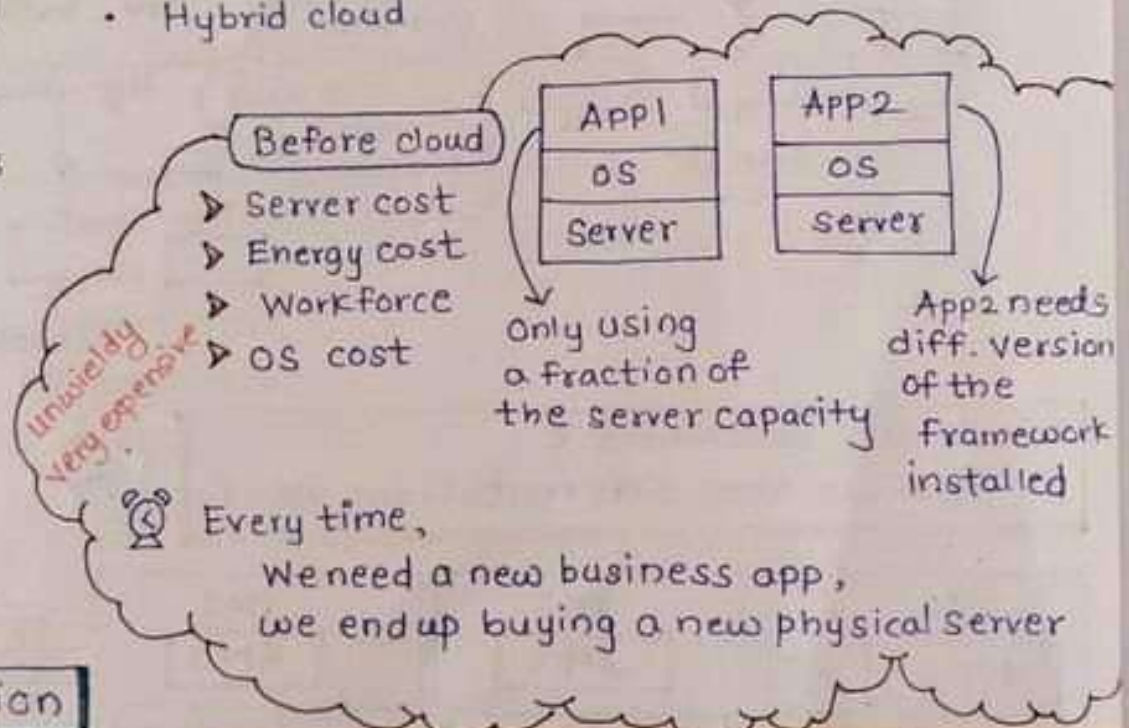 • Hybrid cloud
Before cloud
➤ Server cost
➤ Energy cost
➤ Workforce
➤ OS cost
unwieldy
very expensive
App1
OS
Server
App2
OS
Server
Only using
a fraction of
the server capacity
App2 needs
diff. version
of the
framework
installed
Every time,
We need a new business app,
we end up buying a new physical server